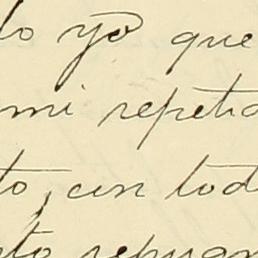 lo yo que
mi repetid
to, con tod
to repugn